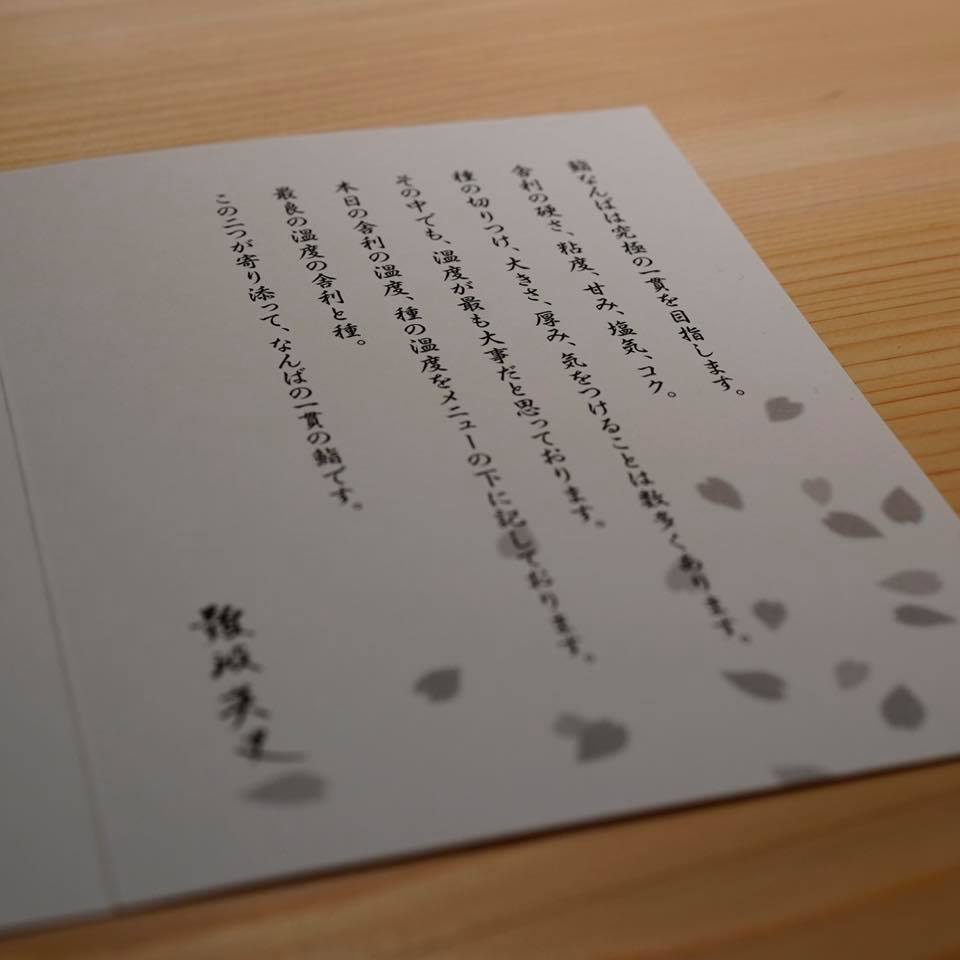 鮨なんばは究極の一貫を目指します。
舎利の硬さ、粘度、甘み、塩気、コク。
種の切りつけ、大きさ、厚み、気をつけることは数多くあります。
その中でも、温度が最も大事だと思っております。
本日の舎利の温度、種の温度をメニューの下に記しております。
最良の温度の舎利と種。
この二つが寄り添って、なんばの一貫の鮨です。
難波英史